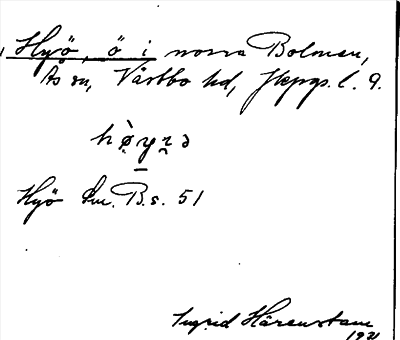 Hyö, ö i norra Bolmen,
Ås sn, Västbo hd, Jkpgs. l. 9.
Hyö Sm. B. s. 51
Ingrid Härenstam
1921